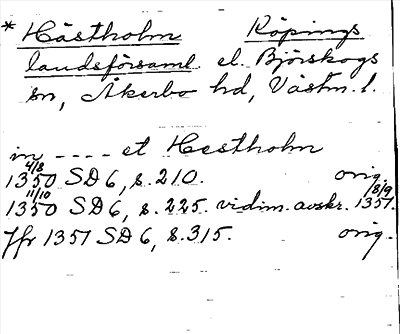 * Hästholm Köpings
landsförsaml. el. Björskogs
sn, Åkerbo hd, Västm. l.
in ---- et Hestholm
1350 4/8 SD 6, s. 210. orig.
1350 11/10 SD 6, s. 225. vidim. avskr. 1351 8/9.
Jfr 1351 SD 6, s. 315. orig.